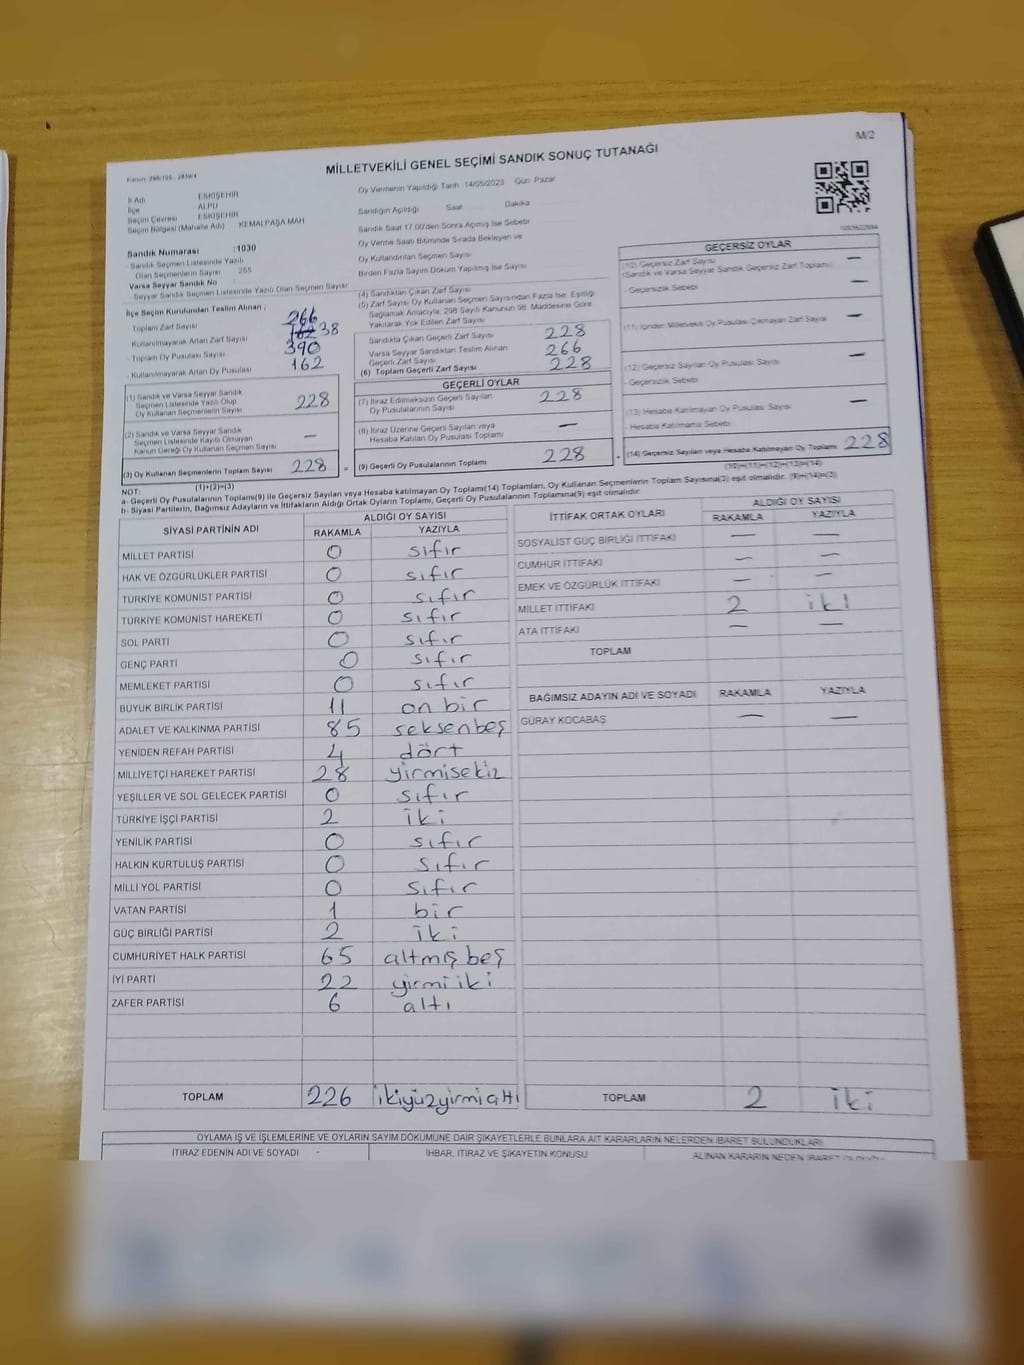 M/2
MİLLETVEKİLİ GENEL SEÇİMİ SANDIK SONUÇ TUTANAĞI
İl Adı ESKİŞEHİR
İlçe ALPU
Seçim Çevresi ESKİŞEHİR
Seçim Bölgesi (Mahalle Adı) KEMALPAŞA MAH
Sandık Numarası :1030
Sandık Seçmen Listesinde Yazılı
Olan Seçmenlerin Sayısı
Varsa Seyyar Sandık No :
Seyyar Sandık Seçmen Listesinde Yazılı Olan Seçmen Sayısı
İlçe Seçim Kurulundan Teslim Alınan ;
Toplam Zarf Sayısı 266
Kullanılmayarak Artan Zarf Sayısı 162 38
Toplam Oy Pusulası Sayısı 390
Kullanılmayarak Artan Oy Pusulası 162
(1) Sandık ve Varsa Seyyar Sandık
Seçmen Listesinde Yazılı Olup
Oy Kullanan Seçmenlerin Sayısı 228
(2) Sandık ve Varsa Seyyar Sandık
Seçmen Listesinde Kayıtlı Olmayan
Kanun Gereği Oy Kullanan Seçmen Sayısı —
(3) Oy Kullanan Seçmenlerin Toplam Sayısı 228 =
(1)+(2)=(3)
Oy Vermenin Yapıldığı Tarih 14/05/2023 Gün Pazar
Sandığın Açıldığı Saat Dakika
Sandık Saat 17.00'den Sonra Açmış İse Sebebi
Oy Verme Saati Bitiminde Sırada Bekleyen ve
Oy Kullandırılan Seçmen Sayısı
Birden Fazla Sayım Döküm Yapılmış İse Sayısı
(4) Sandıktan Çıkan Zarf Sayısı
(5) Zarf Sayısı Oy Kullanan Seçmen Sayısından Fazla İse, Eşitliği
Sağlamak Amacıyla, 298 Sayılı Kanunun 98. Maddesine Göre
Yakılarak Yok Edilen Zarf Sayısı
Sandıkta Çıkan Geçerli Zarf Sayısı 228
Varsa Seyyar Sandıktan Teslim Alınan
Geçerli Zarf Sayısı 266
(6) Toplam Geçerli Zarf Sayısı 228
GEÇERLİ OYLAR
(7) İtiraz Edilmeksizin Geçerli Sayılan
Oy Pusulalarının Sayısı 228
(8) İtiraz Üzerine Geçerli Sayılan veya
Hesaba Katılan Oy Pusulası Toplamı —
(9) Geçerli Oy Pusulalarının Toplamı 228
GEÇERSİZ OYLAR
(10) Geçersiz Zarf Sayısı —
(Sandık ve Varsa Seyyar Sandık Geçersiz Zarf Toplamı)
- Geçersizlik Sebebi —
(11) İçinden Milletvekili Oy Pusulası Çıkmayan Zarf Sayısı —
(12) Geçersiz Sayılan Oy Pusulası Sayısı —
- Geçersizlik Sebebi
(13) Hesaba Katılmayan Oy Pusulası Sayısı —
- Hesaba Katılmama Sebebi
(14) Geçersiz Sayılan veya Hesaba Katılmayan Oy Toplamı 228
(10)+(11)+(12)+(13)=(14)
NOT:
a- Geçerli Oy Pusulalarının Toplamı(9) ile Geçersiz Sayılan veya Hesaba katılmayan Oy Toplamı(14) Toplamları, Oy Kullanan Seçmenlerin Toplam Sayısına(3) eşit olmalıdır. (9)+(14)=(3)
b- Siyasi Partilerin, Bağımsız Adayların ve İttifakların Aldığı Ortak Oyların Toplamı, Geçerli Oy Pusulalarının Toplamına(9) eşit olmalıdır.
SİYASİ PARTİNİN ADI ALDIĞI OY SAYISI
RAKAMLA YAZIYLA
MİLLET PARTİSİ 0 sıfır
HAK VE ÖZGÜRLÜKLER PARTİSİ 0 sıfır
TÜRKİYE KOMÜNİST PARTİSİ 0 sıfır
TÜRKİYE KOMÜNİST HAREKETİ 0 sıfır
SOL PARTİ 0 sıfır
GENÇ PARTİ 0 sıfır
MEMLEKET PARTİSİ 0 sıfır
BÜYÜK BİRLİK PARTİSİ 11 on bir
ADALET VE KALKINMA PARTİSİ 85 seksenbeş
YENİDEN REFAH PARTİSİ 4 dört
MİLLİYETÇİ HAREKET PARTİSİ 28 yirmisekiz
YEŞİLLER VE SOL GELECEK PARTİSİ 0 sıfır
TÜRKİYE İŞÇİ PARTİSİ 2 iki
YENİLİK PARTİSİ 0 sıfır
HALKIN KURTULUŞ PARTİSİ 0 sıfır
MİLLİ YOL PARTİSİ 0 sıfır
VATAN PARTİSİ 1 bir
GÜÇ BİRLİĞİ PARTİSİ 2 iki
CUMHURİYET HALK PARTİSİ 65 altmış beş
İYİ PARTİ 22 yirmi iki
ZAFER PARTİSİ 6 altı
TOPLAM 226 ikiyüzyirmialtı
İTTİFAK ORTAK OYLARI ALDIĞI OY SAYISI
RAKAMLA YAZIYLA
SOSYALİST GÜÇ BİRLİĞİ İTTİFAKI — —
CUMHUR İTTİFAKI — —
EMEK VE ÖZGÜRLÜK İTTİFAKI — —
MİLLET İTTİFAKI 2 iki
ATA İTTİFAKI — —
TOPLAM
BAĞIMSIZ ADAYIN ADI VE SOYADI RAKAMLA YAZIYLA
GÜRAY KOCABAŞ — —
TOPLAM 2 iki
OYLAMA İŞ VE İŞLEMLERİNE VE OYLARIN SAYIM DÖKÜMÜNE DAİR ŞİKAYETLERLE BUNLARA AİT KARARLARIN NELERDEN İBARET BULUNDUKLARI
İTİRAZ EDENİN ADI VE SOYADI İHBAR, İTİRAZ VE ŞİKAYETİN KONUSU ALINAN KARARIN NEDEN İBARET OLDUĞU